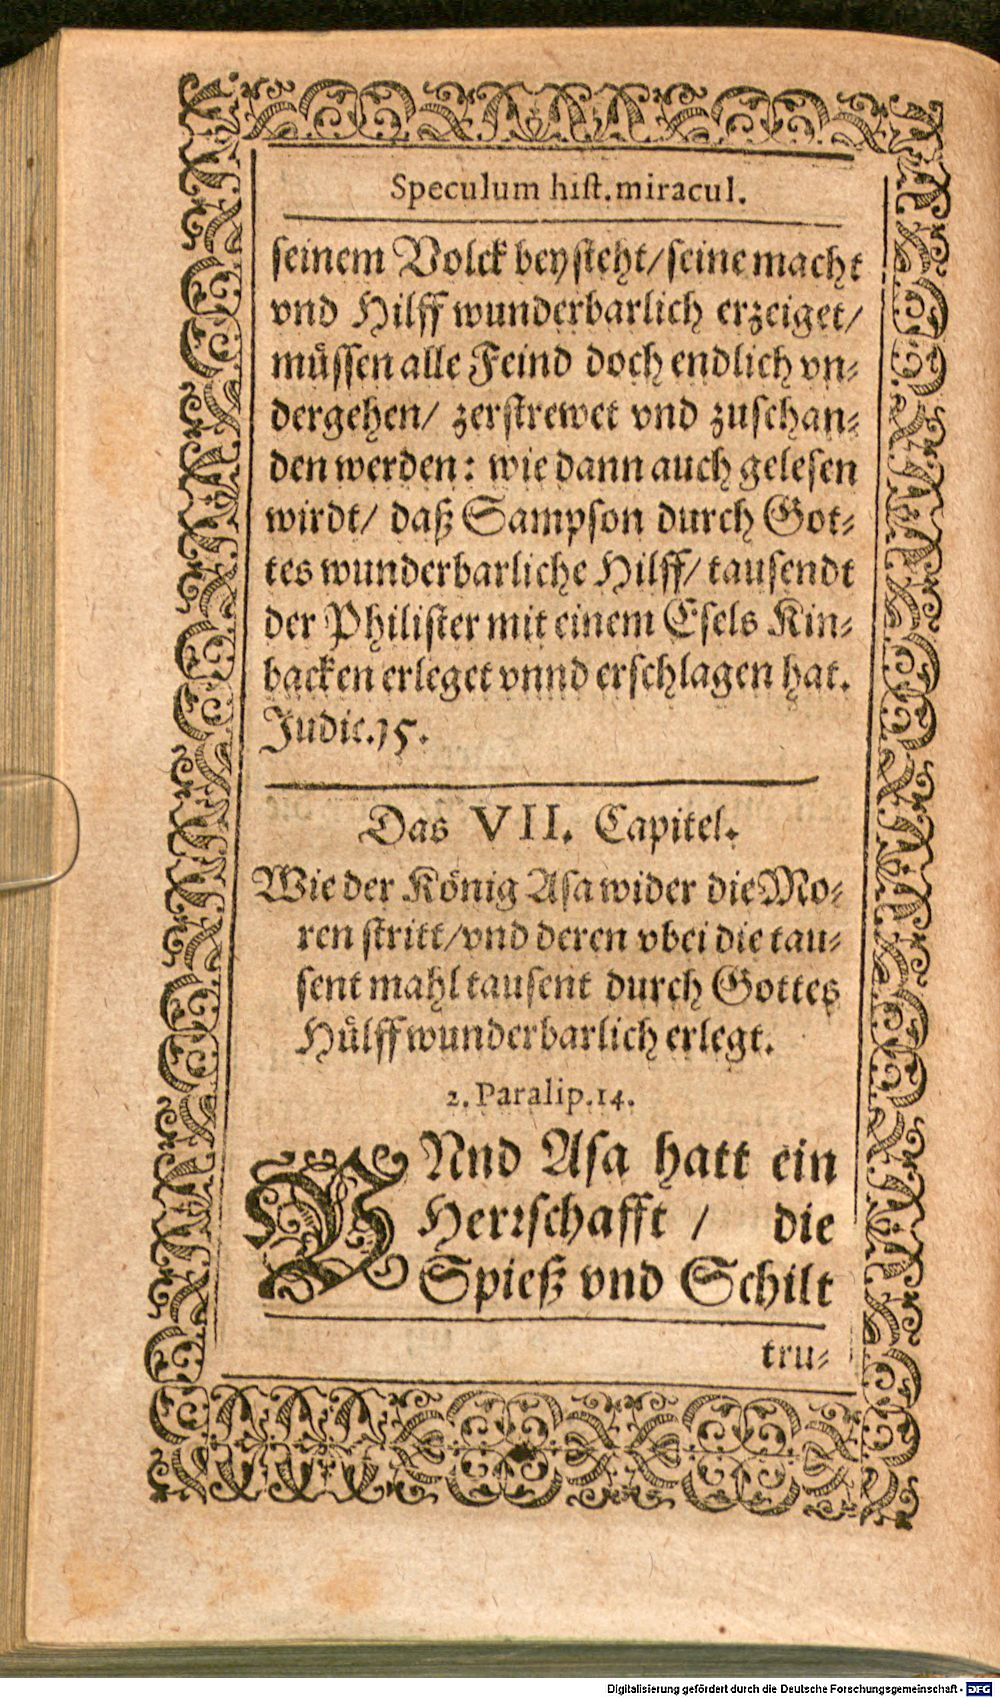 Speculum hist. miracul.
seinem Volck beysteht/ seine macht
vnd Hilff wunderbarlich erzeiget/
müssen alle Feind doch endlich vn-
dergehen/ zerstrewet vnd zuschan-
den werden: wie dann auch gelesen
wirdt/ daß Sampson durch Got-
tes wunderbarliche Hilff/ tausendt
der Philister mit einem Esels Kin-
backen erleget vnnd erschlagen hat.
Judic. 15.
Das VII. Capitel.
Wie der König Asa wider die Mo-
ren stritt/ vnd deren vbei die tau-
sent mahl tausent durch Gottes
Hülff wunderbarlich erlegt.
2. Paralip. 14.
VNnd Asa hatt ein
Herrschafft / die
Spieß vnd Schilt
tru-
Digitalisierung gefördert durch die Deutsche Forschungsgemeinschaft - DFG